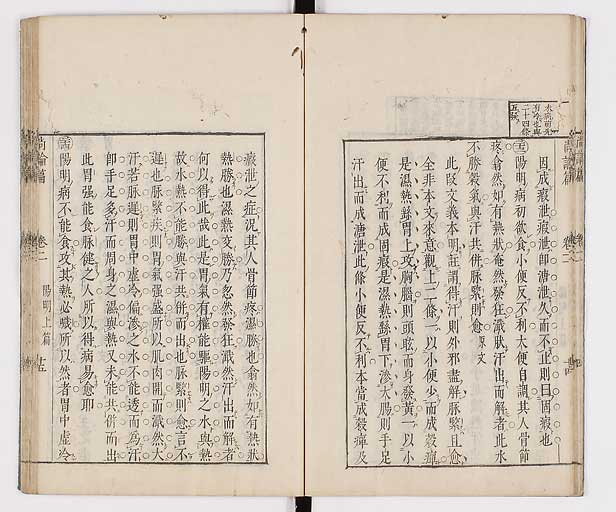 因成瘕泄瘕泄卽溏泄久而不止則曰固瘕也
陽明病初欲食小便反不利大便自調其人骨節
疼翕然如有熱狀奄然發狂濈然汗出而解者此水
不勝穀氣與汗共併脉緊則愈原文
此段文義本明註謂得汗則外邪盡解脉緊且愈
全非本文來意觀上二條一以小便少而成穀癉
是濕熱蘇胃上攻胸腦則頭眩而身發黃一以小
便不利而成固瘕是濕熱蘇胃下滲大腸則手足
汗出而成溏泄此條小便反不利本當成穀癉及
瘕泄之症況其人骨節疼濕勝也翕然如有熱狀
熱勝也濕熱交勝乃忽然發狂濈然汗出而解者
何以得此哉此是胃氣有權能驅陽明之水與熱
故水熱不能勝與汗共併而出也脉緊則愈言不
遲也脉緊疾則胃氣強盛所以肌肉開而濈然大
汗若脉遲則胃中虛冷偏滲之水不能透而爲汗
卽手足多汗而周身之濕與熱又未能共併而出
此胃强能食脉健之人所以得病易愈耶
陽明病不能食攻其熱必噦所以然者胃中虛冷
尚論篇 卷二 陽明上篇